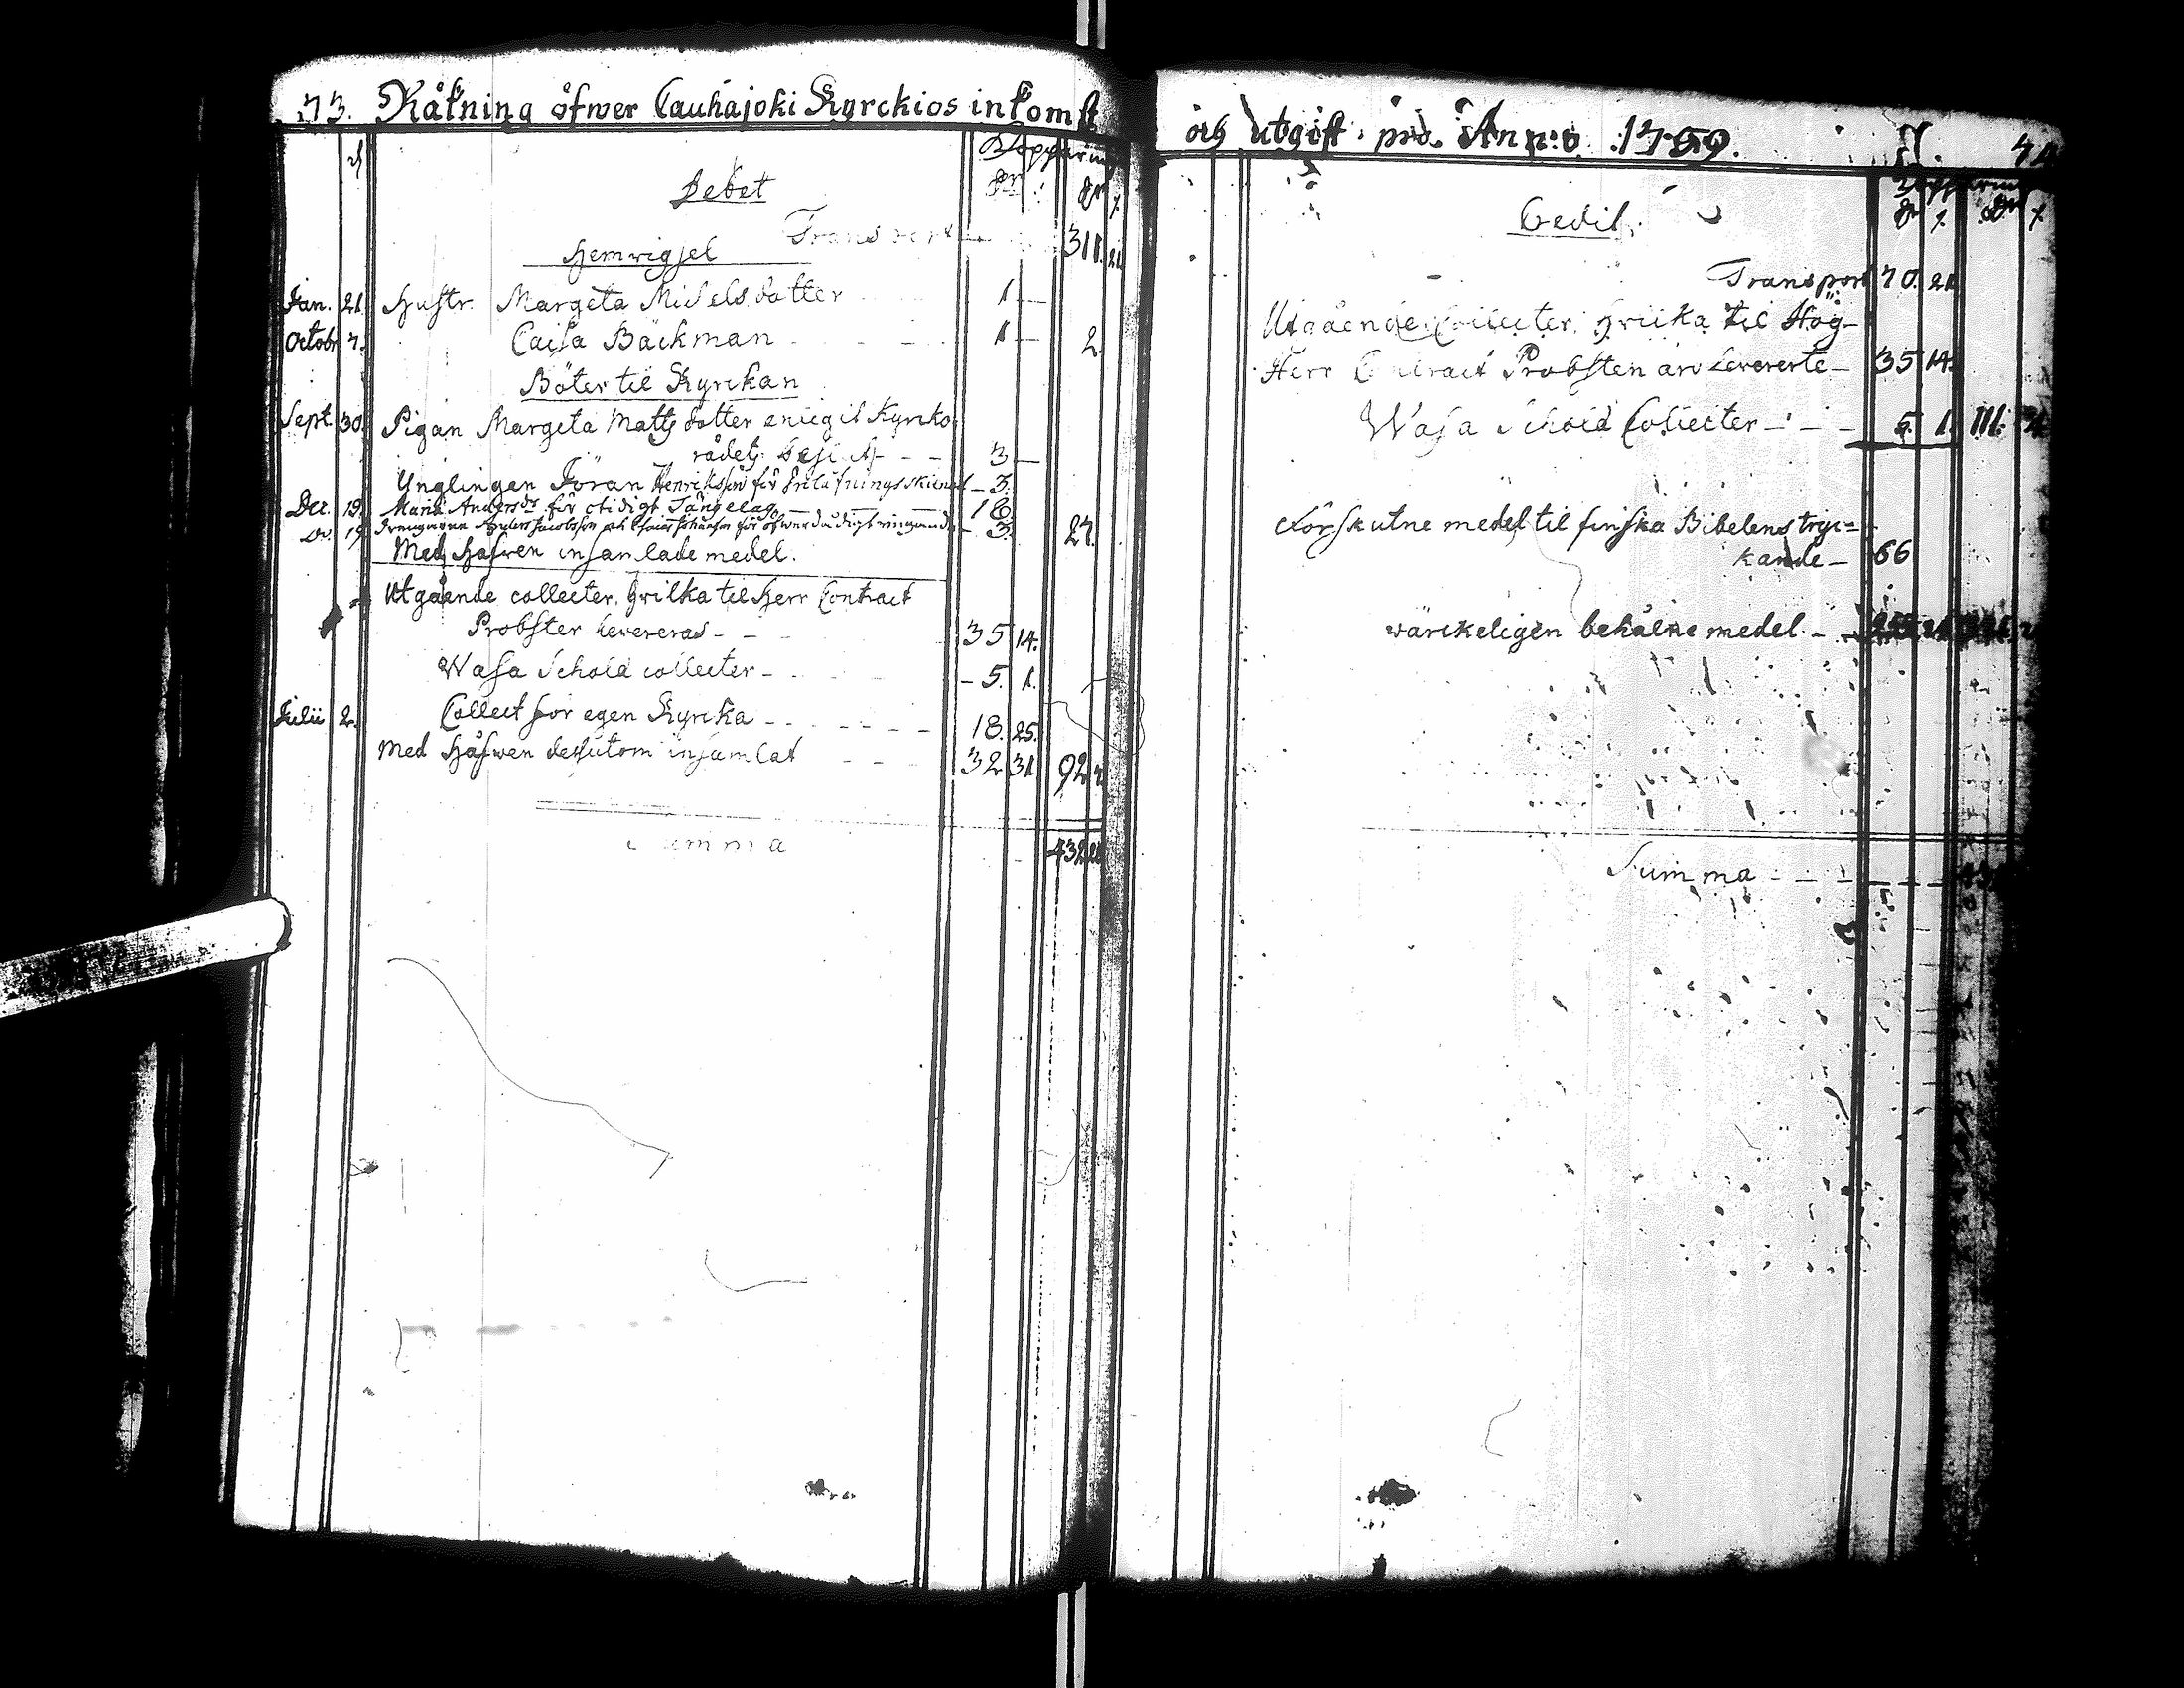 73. Räkning öfwer Cauhajoki Kyrckios inkomst
Kopparmt
Debet
Transport 311. 21
Hemrigjel
Jan. 21. Hustr. Margeta Michelsdotter 1 —
Octobr 7. Caisa Bäckman 1 — 2.
Böter til Kyrckan
Sept. 30. Pigan Margeta Matts dotter enligit Kyrko
rådets 3 —
Ynglingen Jöran Henriksson för — 3.
Dec. 19. Maria Andersdr för otidigt Sängelag 18.
Do. 19. — 3. 27.
Med Håfwen insamlade medel.
Utgående collecter, hvilka til Herr Contract
Probsten levereras 35 14.
Wasa Schola collecter — 5. 1.
Julii 2. Collect för egen Kyrcka 18. 25.
Med Håfwen dessutom insamlat 32 31 92. 7
Summa 432 28
och utgift pro Anno 1759. 74
Kopparmt
Credit.
Transport 70. 21
Utgående Collecter, hvilka til Hög-
Herr Contract Probsten äro levererte — 35 14.
Wasa Schola Collecter — 5. 1. 111. 4
Förskutne medel til finska Bibelens tryc=
kande — 66
wärckeligen behålne medel. —
Summa